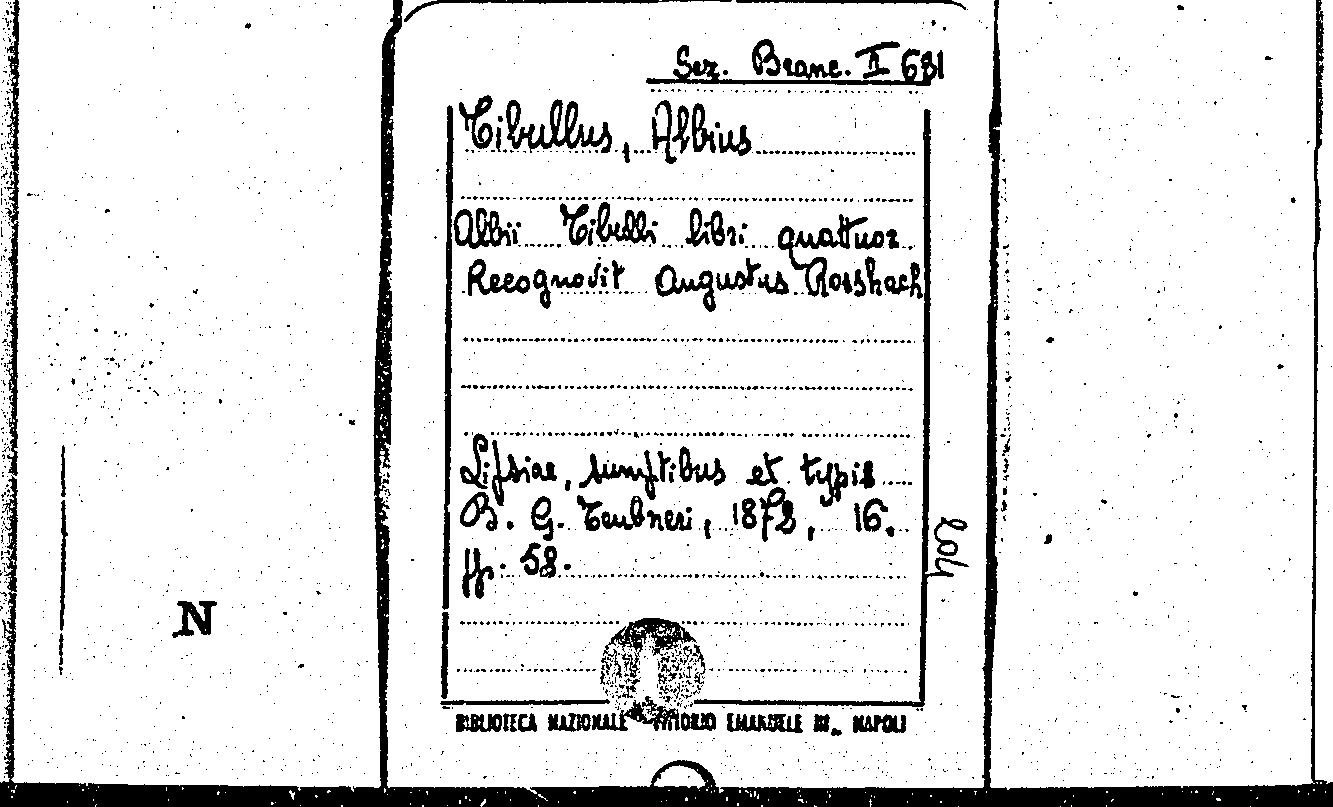 Sez. Branc. II 631
Tibullus, Albius
Albii Tibulli libri quattuor
Recognovit Augustus Rossbach
Lipsiae, sumptibus et typis
B. G. Teubneri, 1872, 16.
pp. 58.
N
BIBLIOTECA NAZIONALE VITTORIO EMANUELE III, NAPOLI